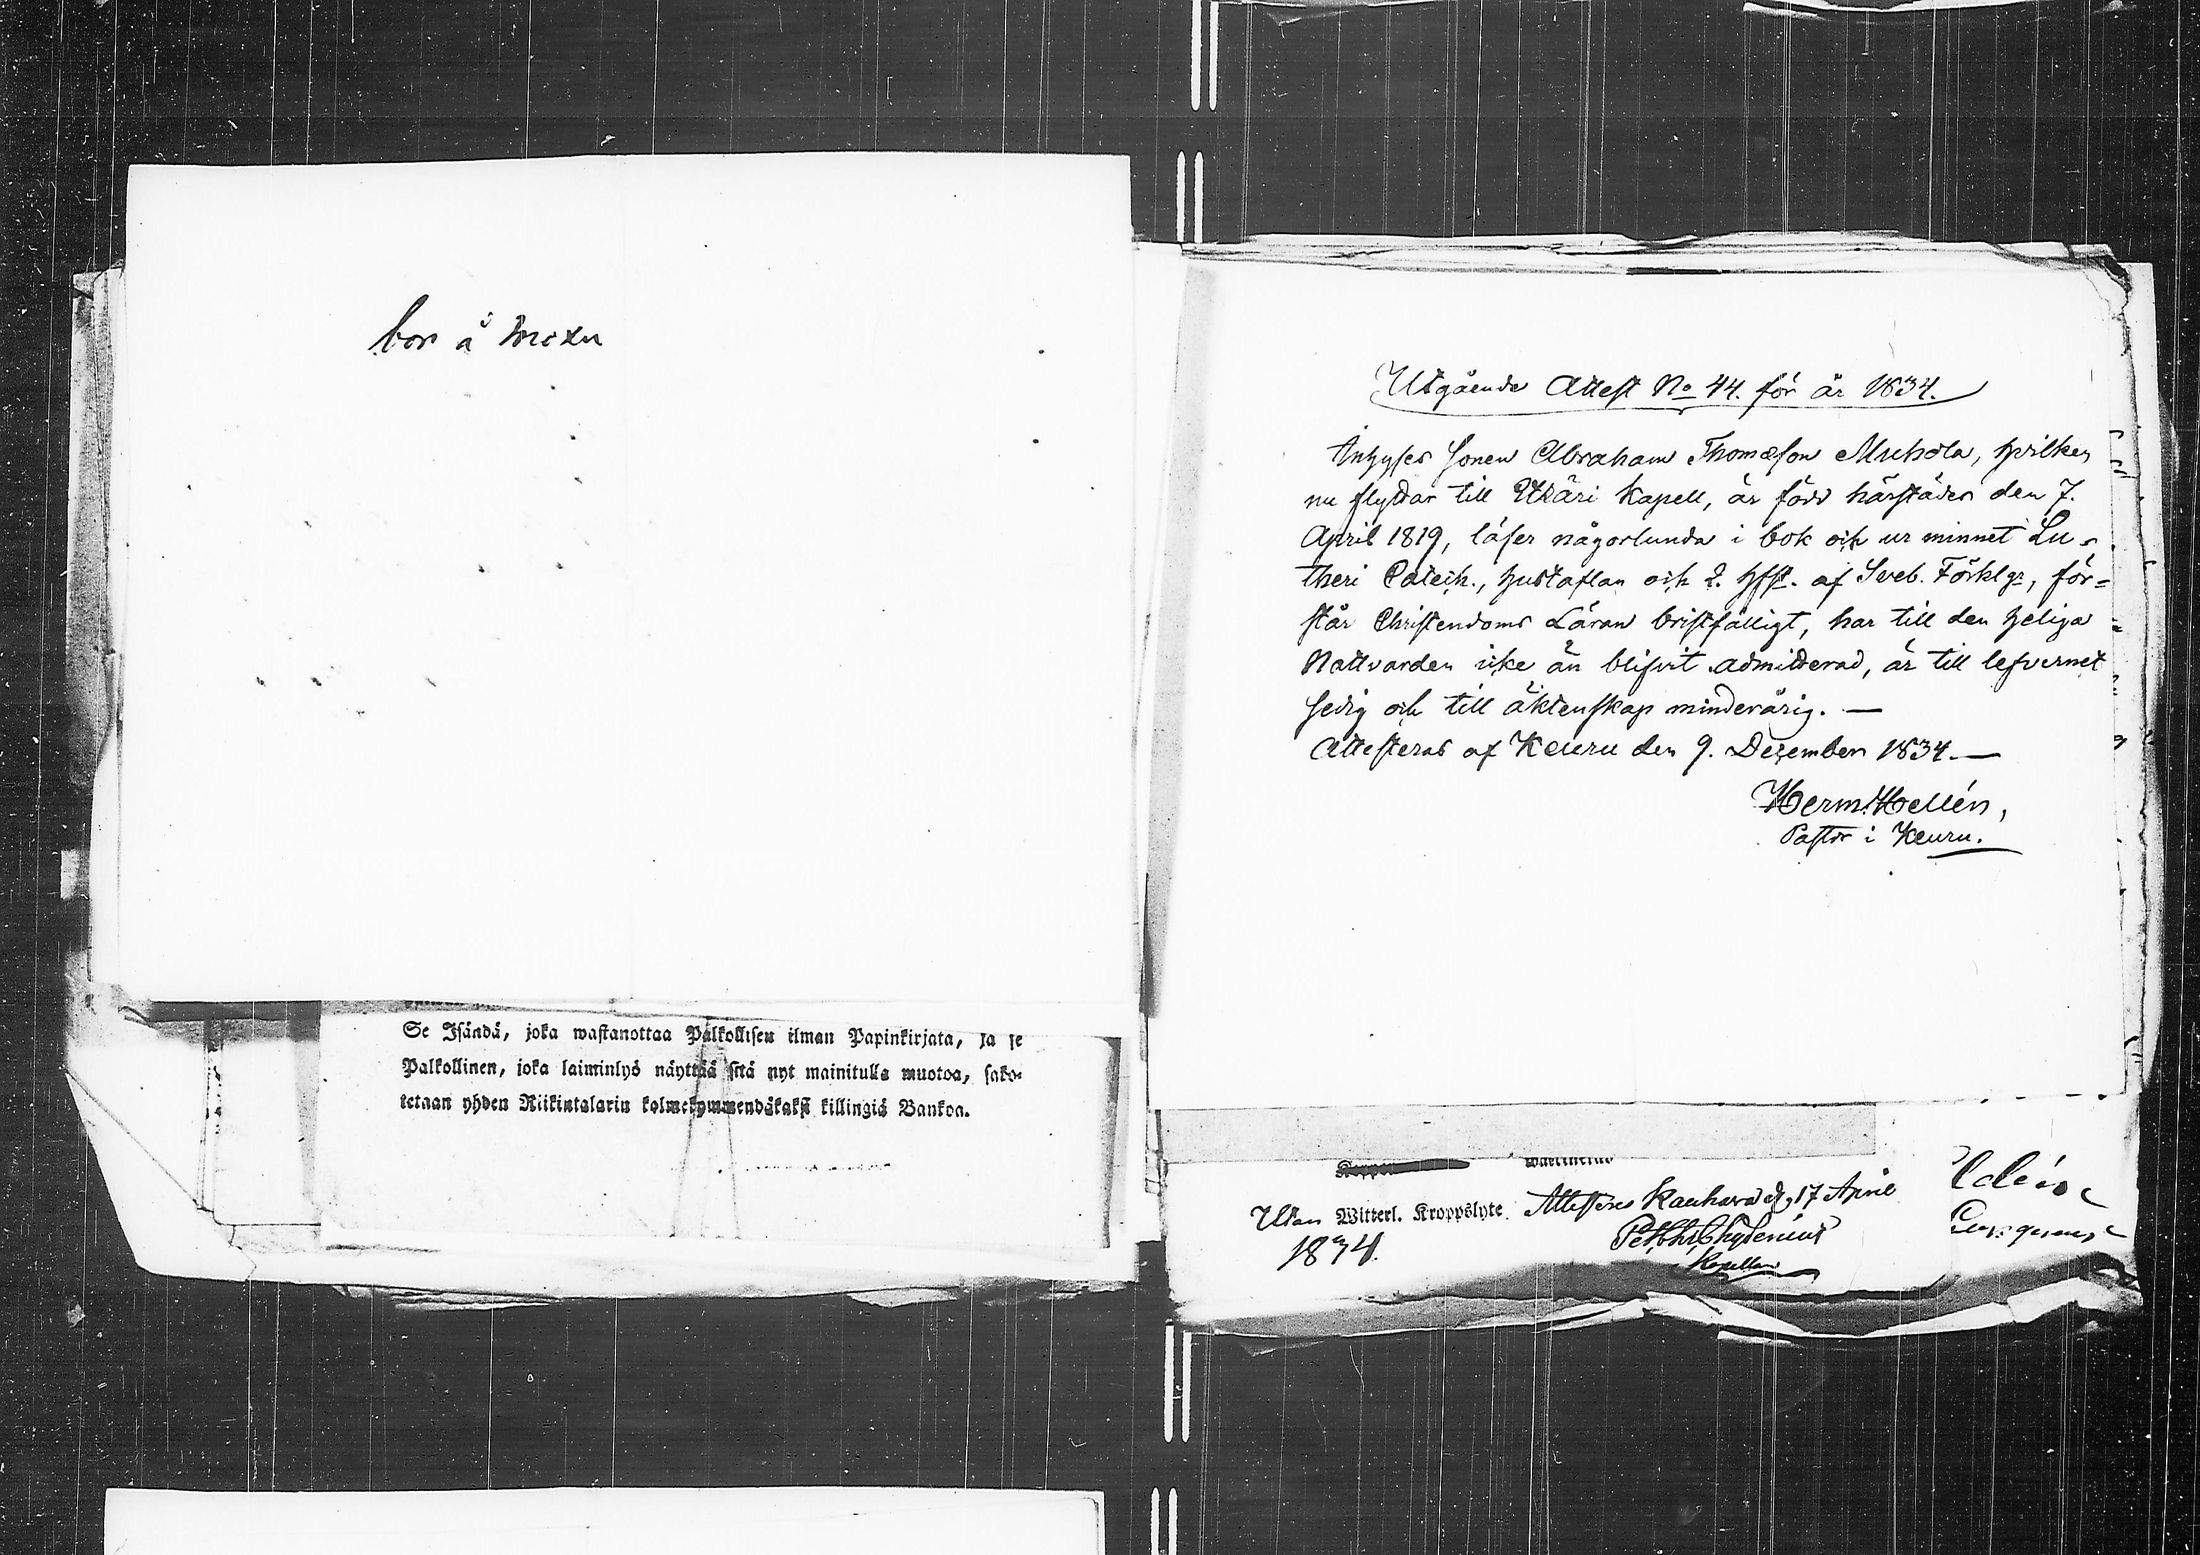 bor å
Se Isändä, joka wastanottaa Palkollisen ilman Papinkirjata, ja se
Palkollinen, joka laiminlyö näyttää sitä nyt mainitulla muotoa, sako-
tetaan yhden Riikintalarin kolmekymmendäkaksi killingiä Bankoa.
Utgående Attest No 44. för år 1834.
Inhyses Sonen Abraham Thomæson Muhola, hvilken
nu flyttar till Etsäri Kapell, är född härstädes den 7.
April 1819, läser någorlunda i bok och ur minnet Lu-
theri Catech., hustaflan och 2. hfst. af Sveb. Förklgr, för=
står Christendoms Läran bristfälligt, har till den heliga
Nattvarden icke än blifvit admitterad, är till lefvernet
sedig och till äktenskap minderårig. —
Attesteras af Keuru den 9. December 1834. —
Herm: Hellén,
Pastor i Keuru.
Utan Witterl. Kroppslyte. Attesteras Kauhava d. 17 April
1834.
Chydenius
Kapellan